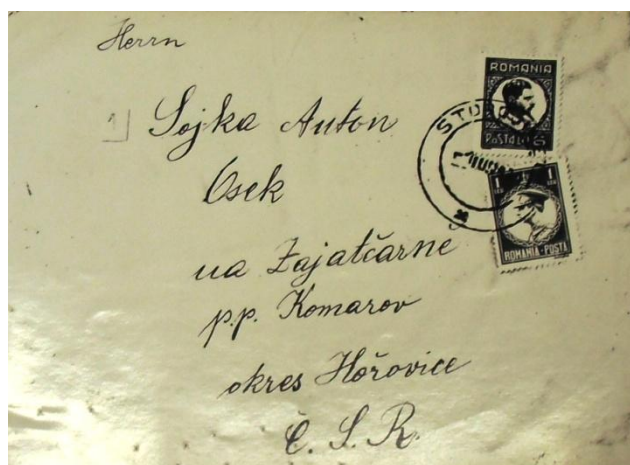 Herrn
1
Sojka Anton
Osek
na Zajatčarne
p.p. Komarov
okres Hořovice
Č. S. R.
ROMANIA
1 1
ROMANIA·POSTA